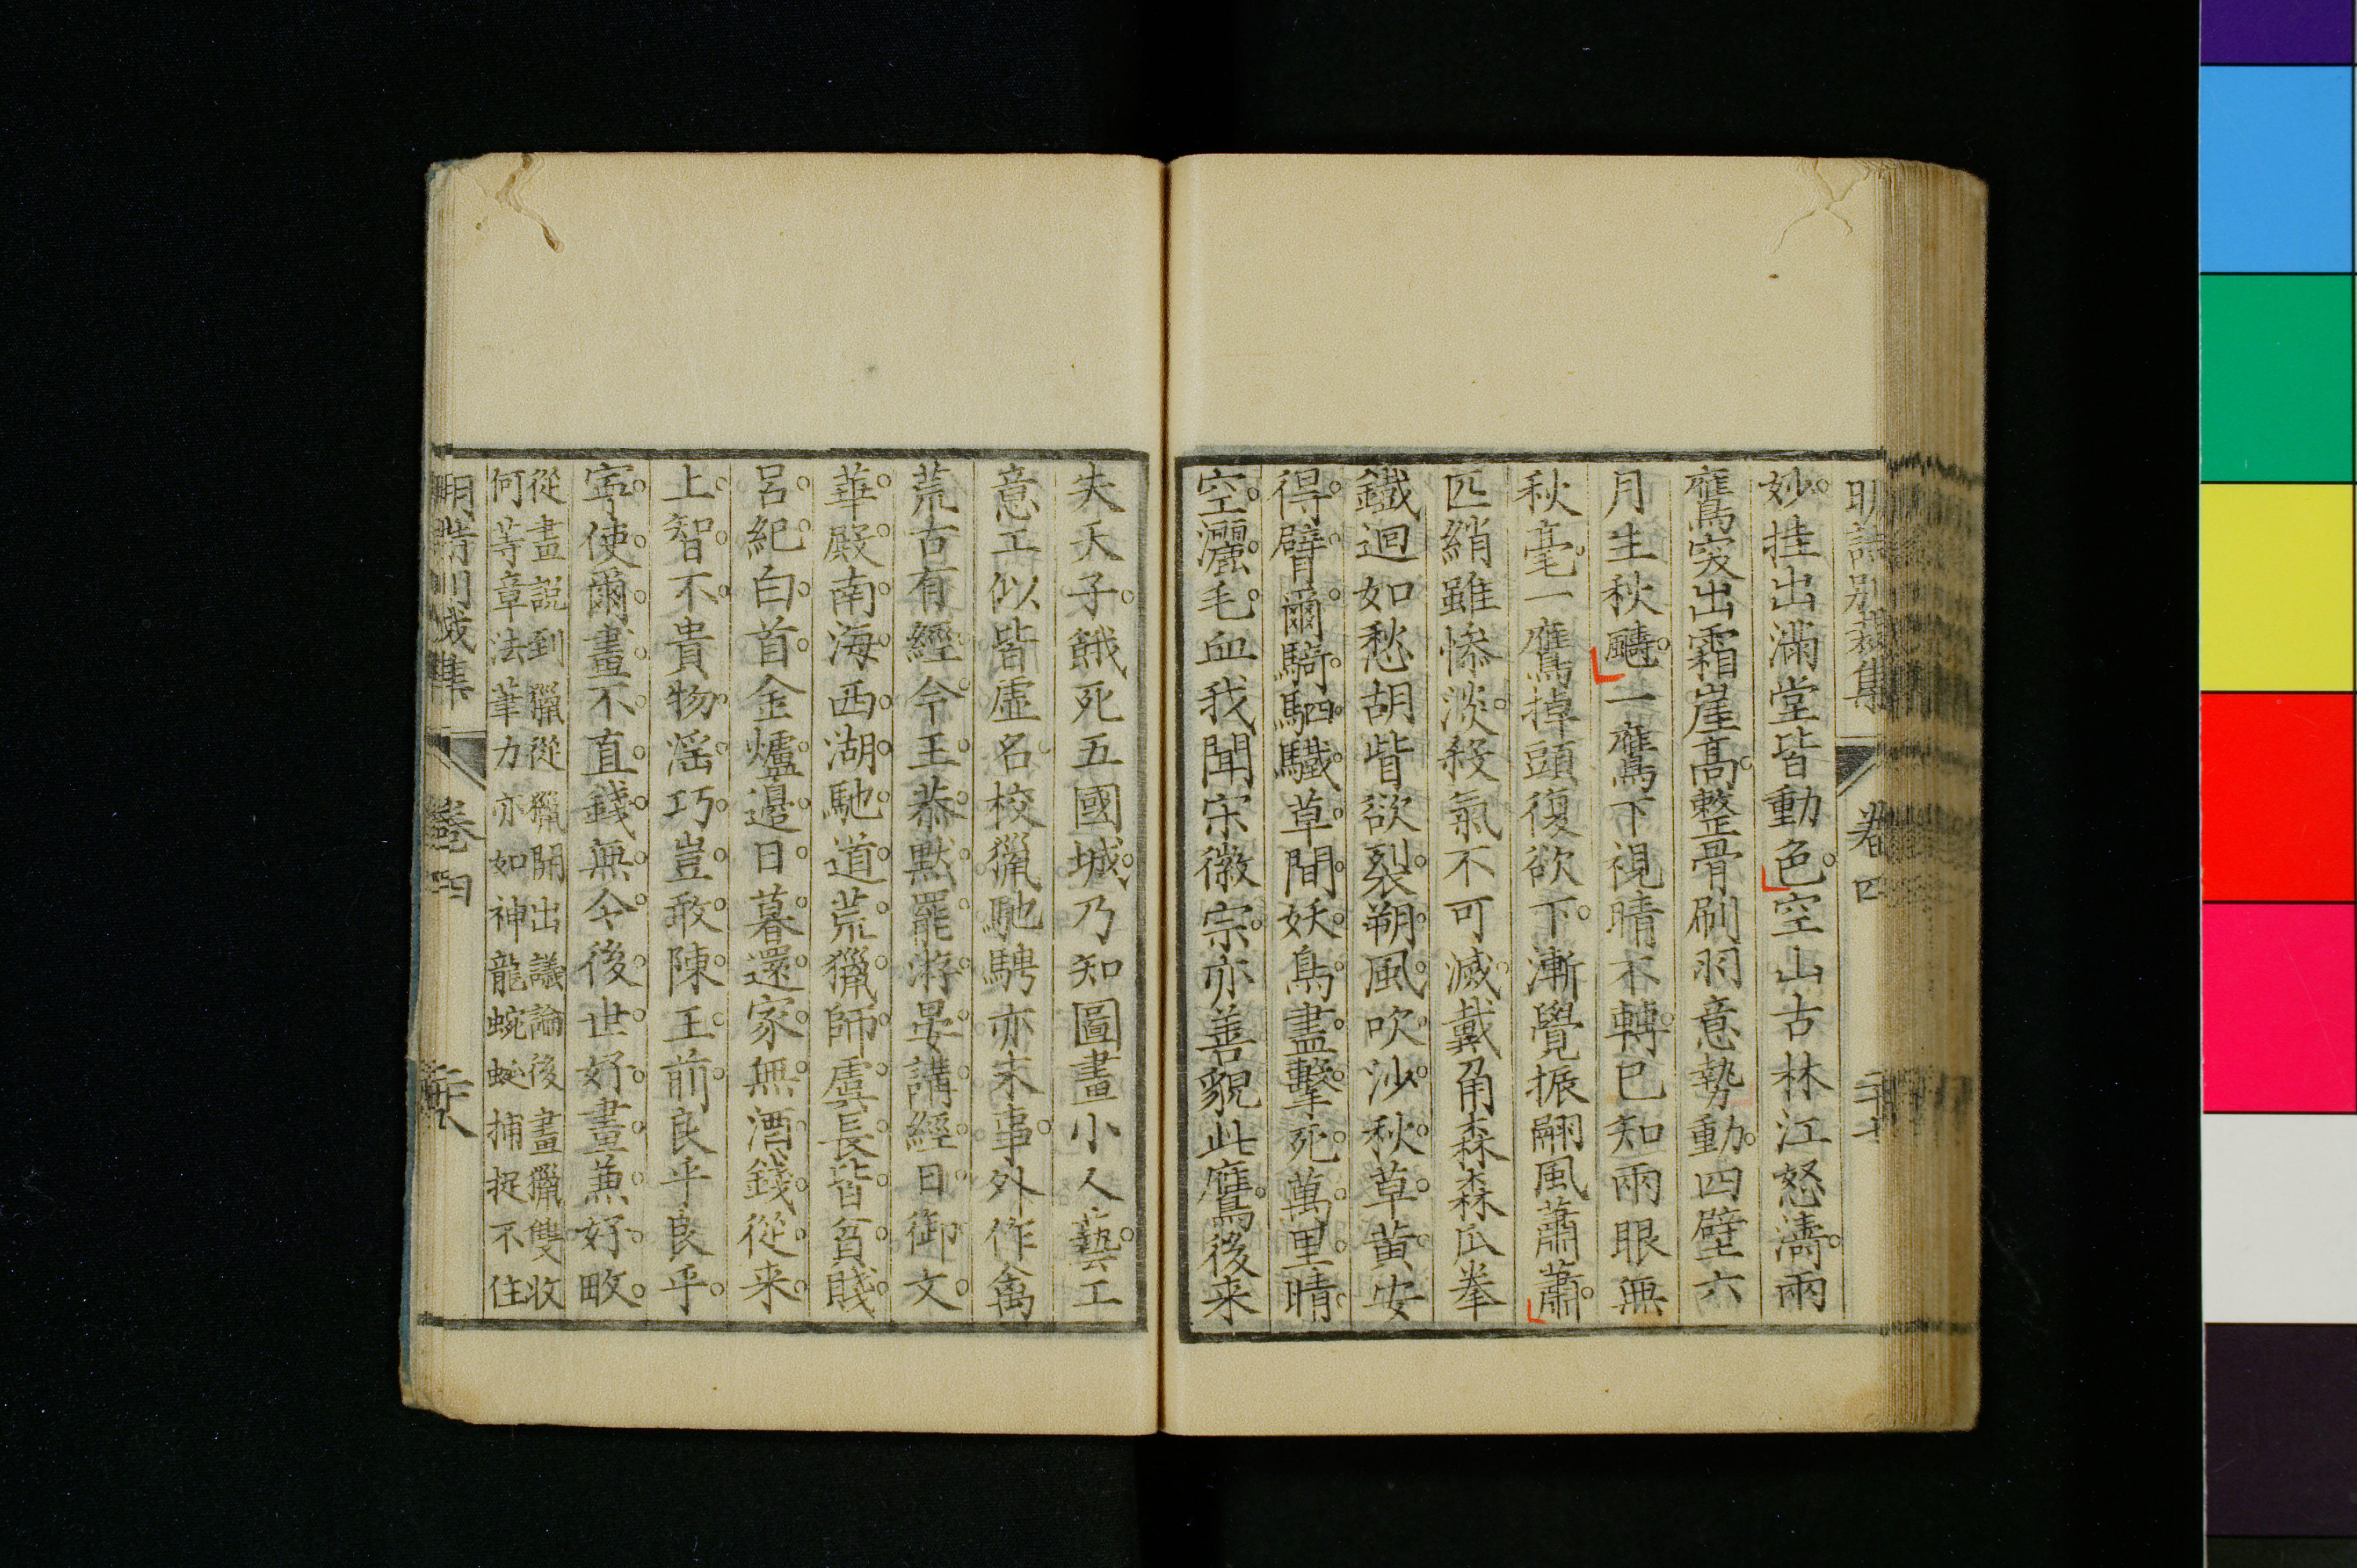 明詩別裁集 卷四
妙挂出滿堂皆動色空山古林江怒濤兩
鷹突出霜崖高整骨刷羽意勢動四壁六
月生秋飈一鷹下視睛不轉已知兩眼無
秋毫一鷹掉頭復欲下漸覺振翮風蕭蕭
匹綃雖慘淡殺氣不可滅戴角森森爪拳
鐵迴如愁胡眥欲裂朔風吹沙秋草黄安
得臂爾騎駟驖草間妖鳥盡擊死萬里晴
空灑毛血我聞宋徽宗亦善貌此鷹後来
失天子餓死五國城乃知圖畫小人藝工
意工似皆虛名校獵馳騁亦末事外作禽
荒古有經今王恭默罷游晏講經日御文
華殿南海西湖馳道荒獵師虞長皆貧賤
呂紀白首金爐邊日暮還家無酒錢從来
上智不貴物淫巧豈敢陳王前良乎良乎
寧使爾畫不直錢無令後世好畫兼好畋
從畫說到獵從獵開出議論後畫獵雙收
何等章法筆力亦如神龍蜿蜒捕捉不住
卷四